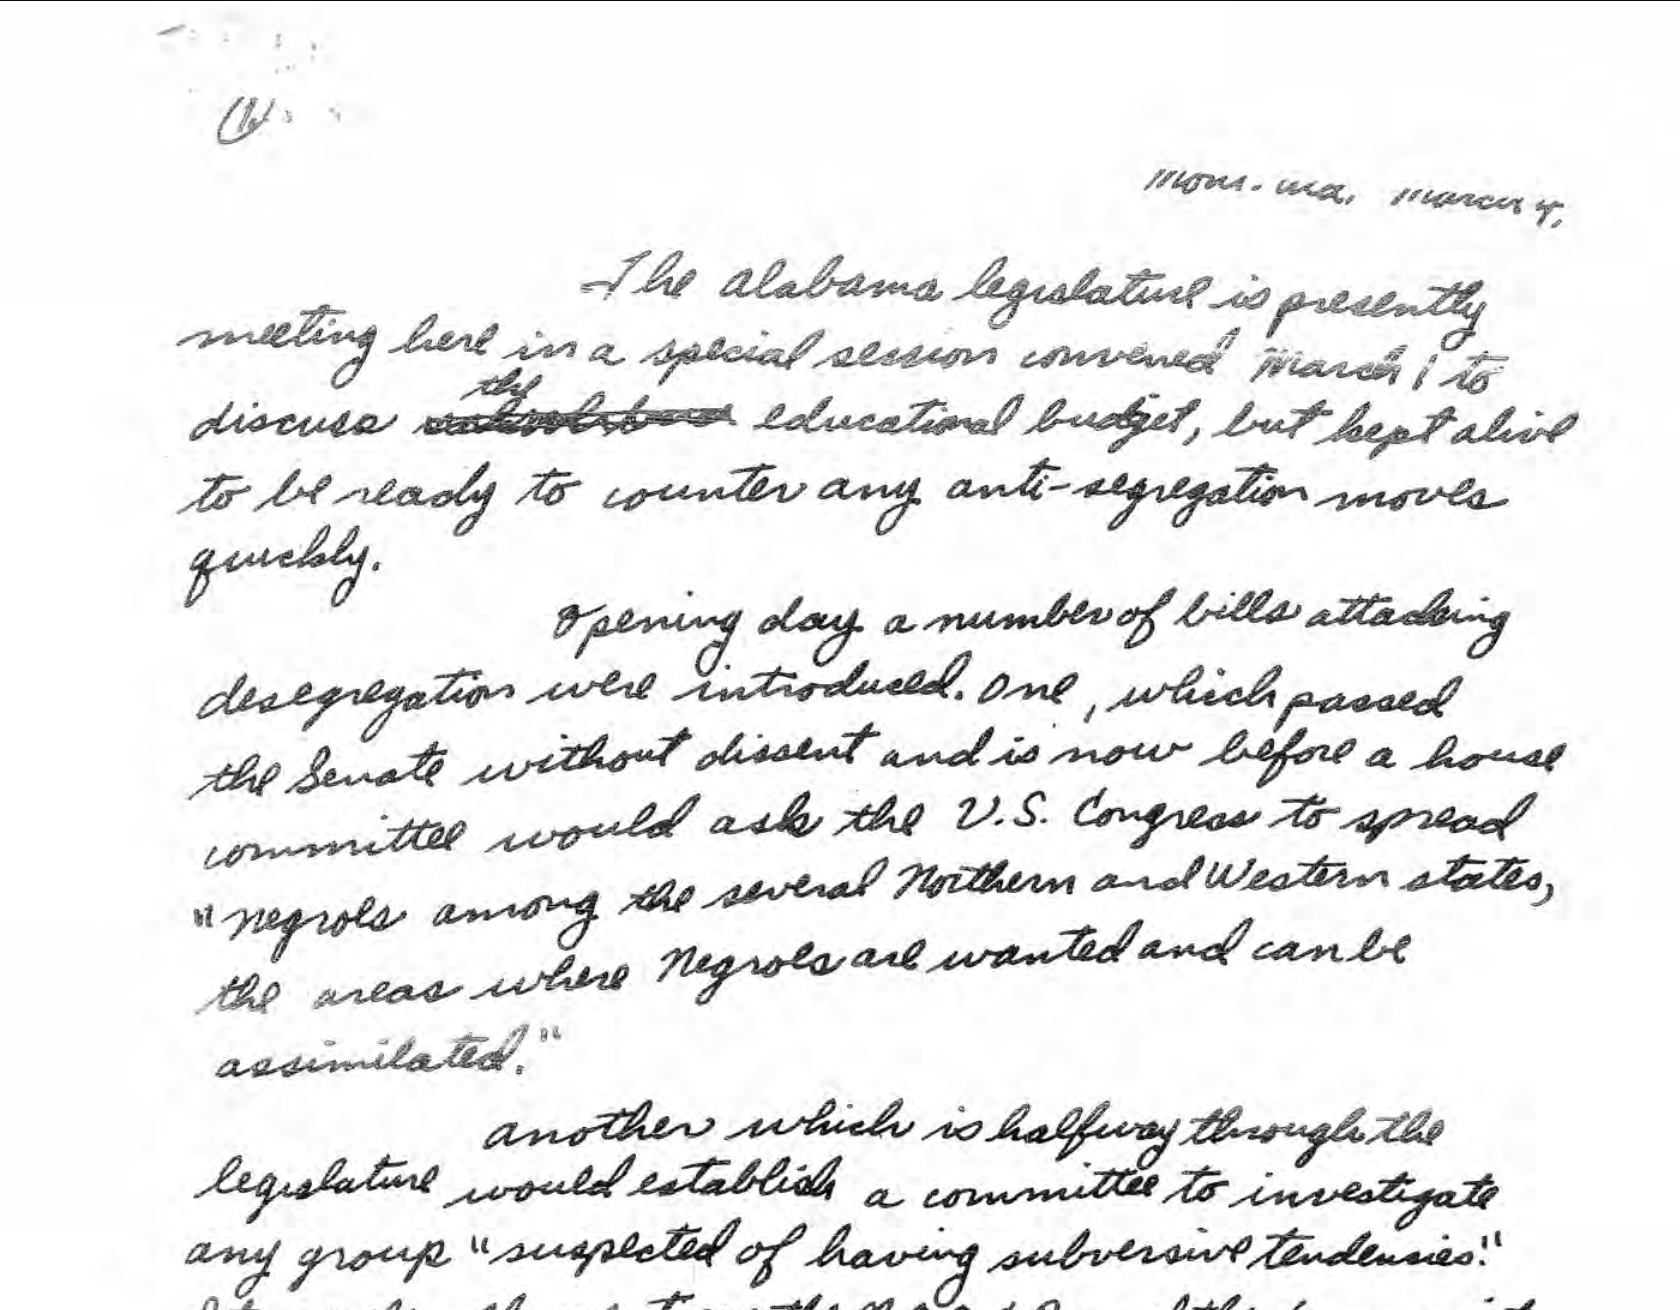 (1)
March 4,
The Alabama legislature is presently
meeting here in a special session convened March 1 to
the
discuss educational budget, but kept alive
to be ready to counter any anti-segregation moves
quickly.
Opening day a number of bills attacking
desegregation were introduced. One, which passed
the Senate without dissent and is now before a house
committee would ask the U.S. Congress to spread
"Negroes among the several Northern and Western states,
the areas where Negroes are wanted and can be
assimilated."
Another which is halfway through the
legislature would establish a committee to investigate
any group "suspected of having subversive tendensies."